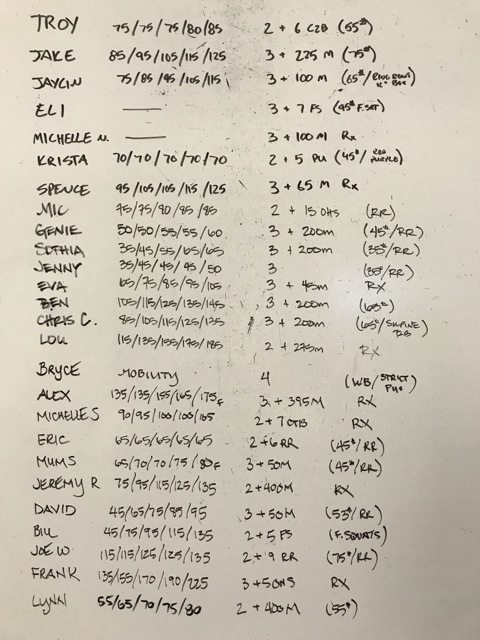 TROY 75/75/75/80/85 2 + 6 C2B (55#)
JAKE 85/95/105/115/125 3 + 225 M (75#)
JAYLIN 75/85/95/105/115 3 + 100 M (65#/RING ROWS
ELI — 3 + 7 FS (45# F.SQT)
MICHELLE N. — 3 + 100 M Rx
KRISTA 70/70/70/70/70 2 + 5 PU (45#/RED PURPLE)
SPENCE 95/105/105/115/125 3 + 65 M Rx
MIC 75/75/80/85/85 2 + 15 OHS (RR)
GENIE 50/50/55/55/60 3 + 200m (45#/RR)
SOTHIA 35/45/55/65/65 3 + 200m (35#/RR)
JENNY 35/45/45/45/50 3 (35#/RR)
EVA 65/75/85/95/105 3 + 45m RX
BEN 105/115/125/135/145 3 + 200m (65#)
CHRIS C. 85/105/115/125/135 3 + 200m (65#/SUPINE
LOU 115/135/155/175/185 2 + 275m RX
BRYCE MOBILITY 4 (WB/STRICT
ALEX 135/135/155/165/175F 3 + 395M RX
MICHELLE S 90/95/100/100/105 2 + 7 CTB RX
ERIC 65/65/65/65/65 2 + 6 RR (45#/RR)
MUMS 65/70/70/75/80F 3 + 50M (45#/RR)
JEREMY R 75/95/115/125/135 2 + 400M RX
DAVID 45/65/75/85/95 3 + 50M (53#/RR)
BILL 45/75/95/115/135 2 + 5 FS (F.SQUATS)
JOE W 115/115/125/125/135 2 + 9 RR (75#/RR)
FRANK 135/155/170/190/225 3 + 5 OHS RX
LYNN 55/65/70/75/80 2 + 400M (55#)